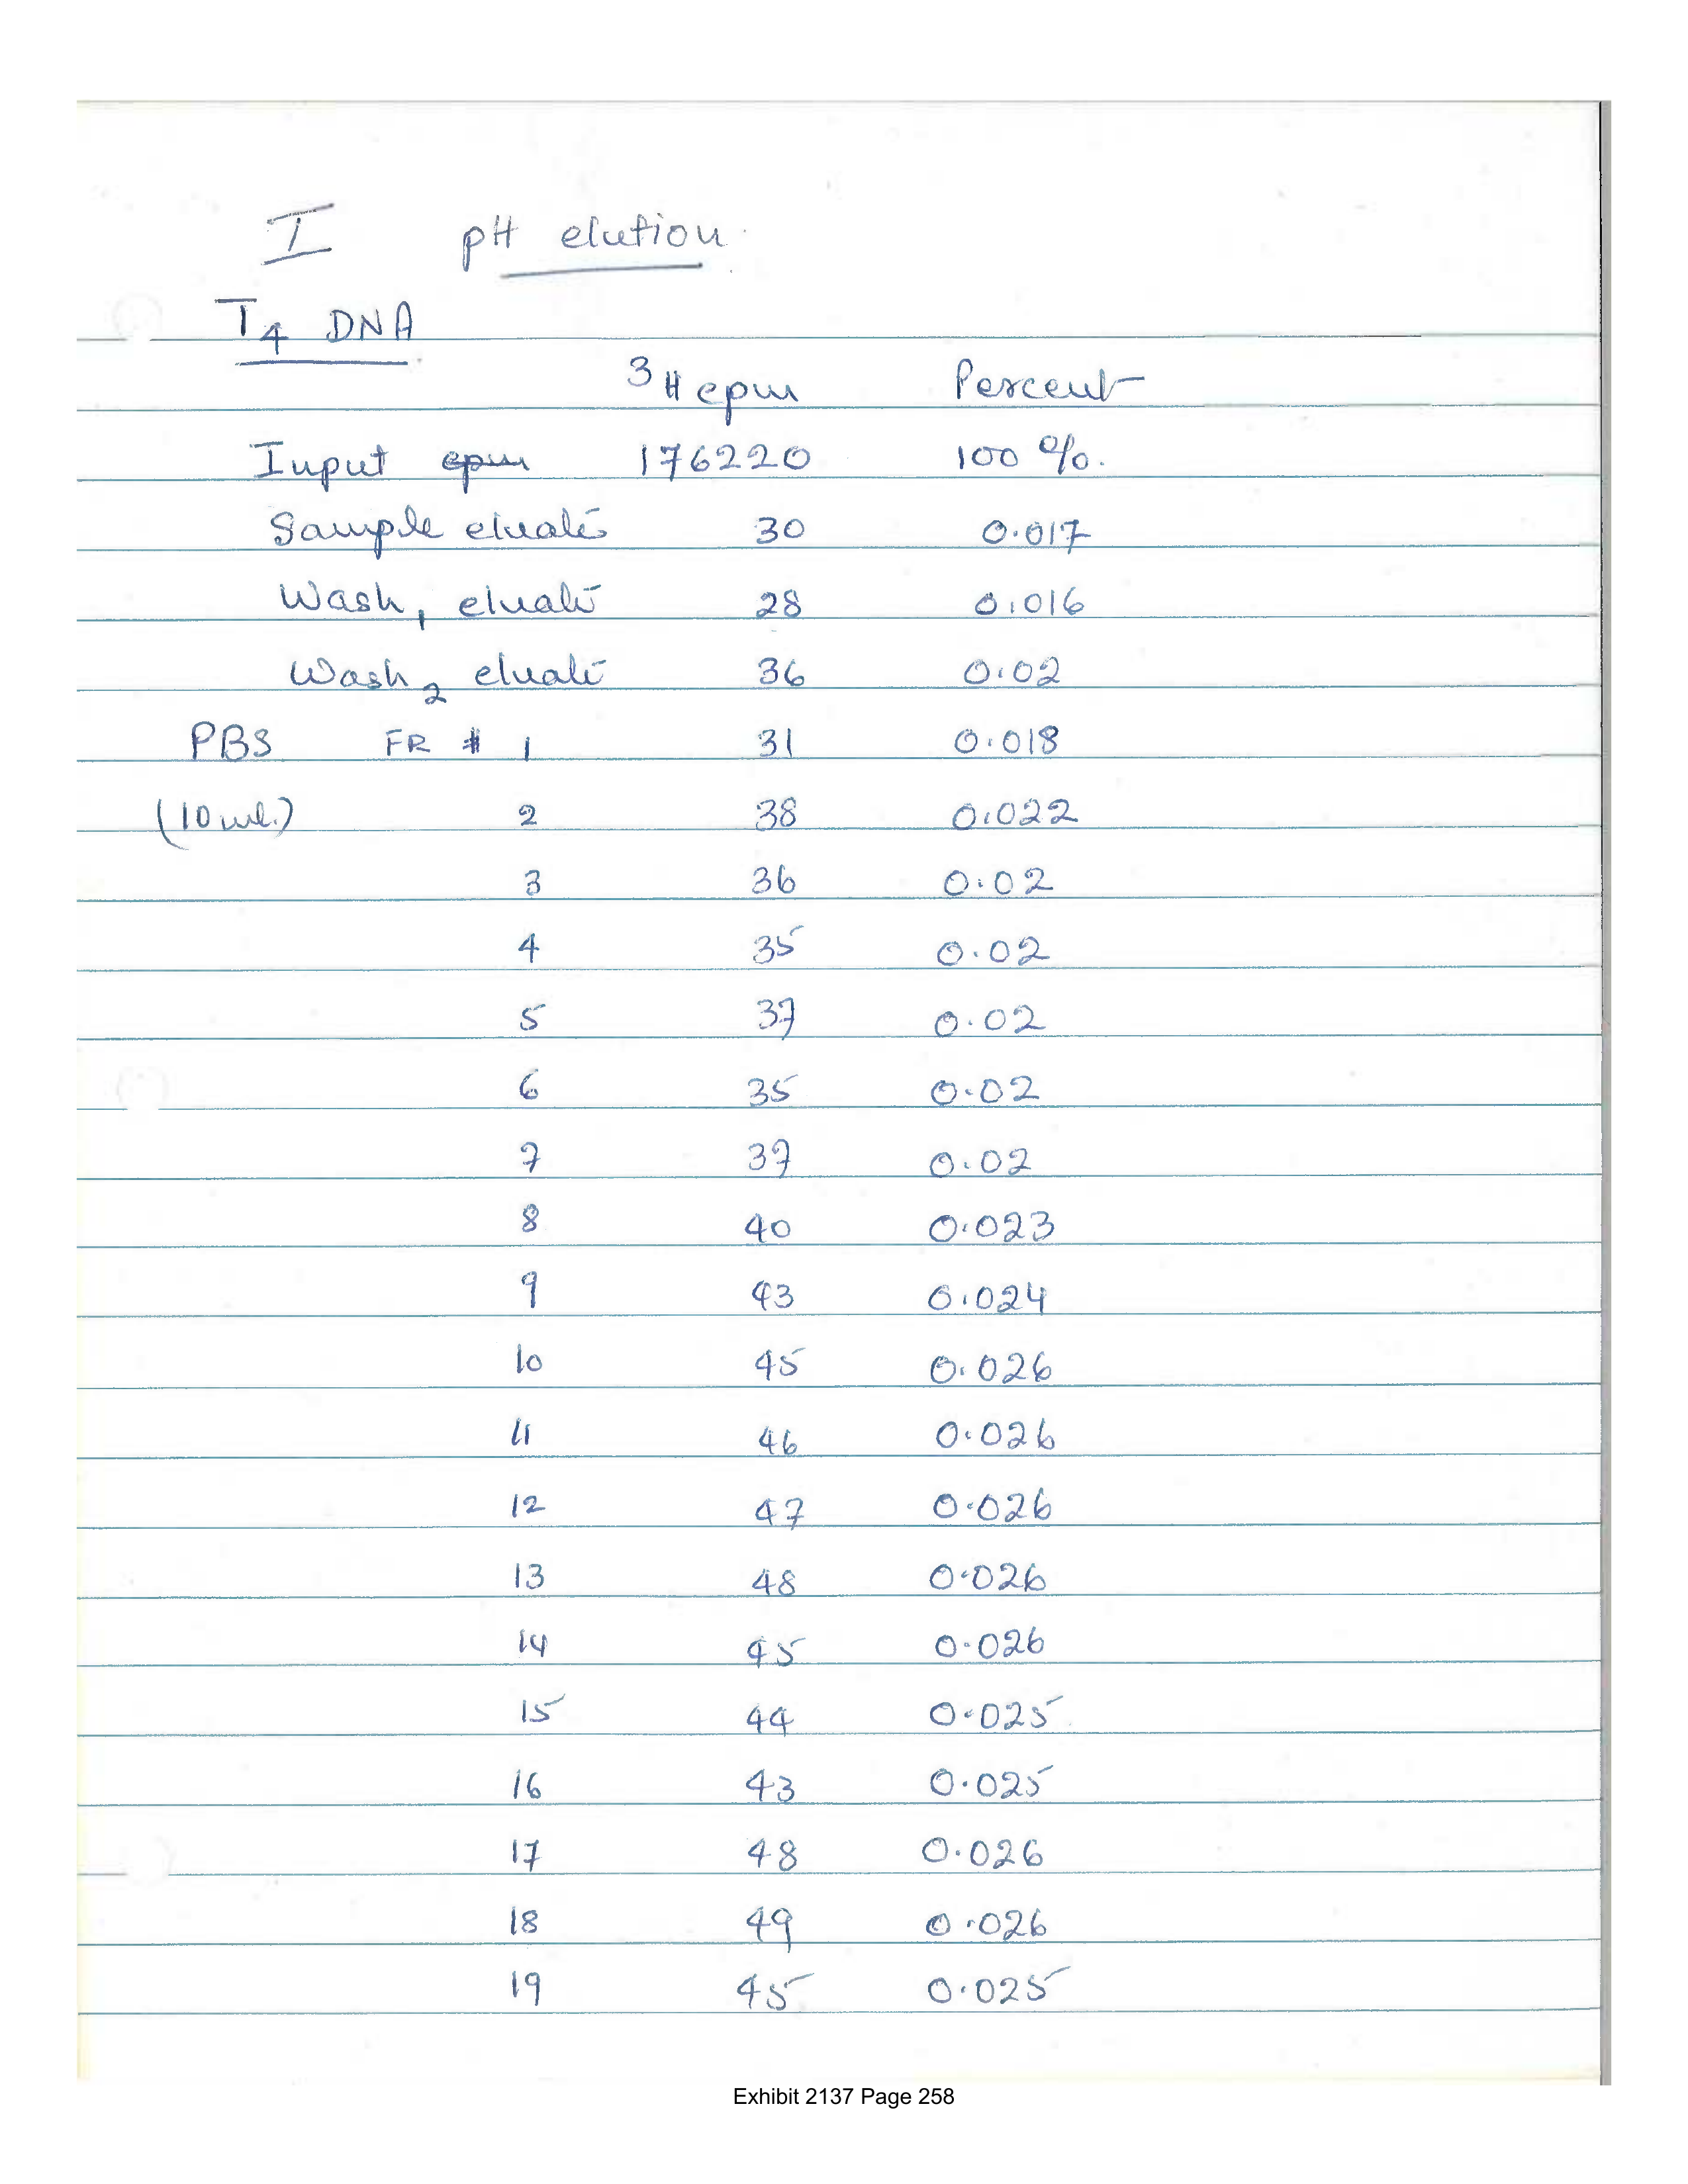 I pH elution
T4 DNA
3H cpm Percent
Input cpm 176220 100 %.
Sample eluate 30 0.017
Wash1 eluate 28 0.016
Wash2 eluate 36 0.02
PBS FR # 1 31 0.018
(10 ml.) 2 38 0.022
3 36 0.02
4 35 0.02
5 37 0.02
6 35 0.02
7 37 0.02
8 40 0.023
9 43 0.024
10 45 0.026
11 46 0.026
12 47 0.026
13 48 0.026
14 45 0.026
15 44 0.025
16 43 0.025
17 48 0.026
18 49 0.026
19 45 0.025
Exhibit 2137 Page 258